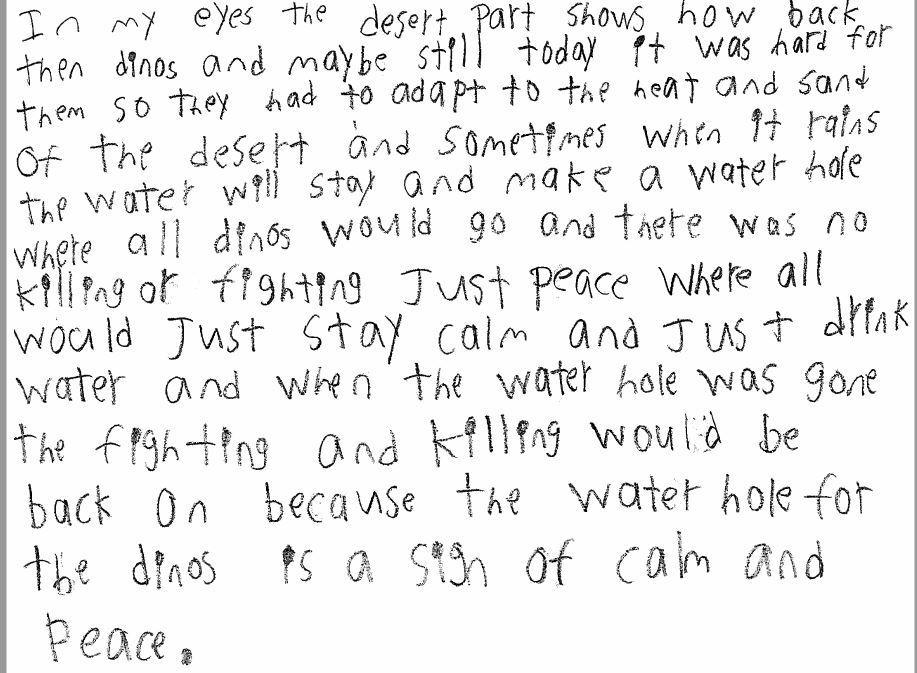 In my eyes the desert part shows how back
then dinos and maybe still today it was hard for
them so they had to adapt to the heat and sand
of the desert and sometimes when it rains
the water will stay and make a water hole
where all dinos would go and there was no
killing or fighting Just peace where all
would Just stay calm and Just drink
water and when the water hole was gone
the fighting and killing would be
back on because the water hole for
the dinos is a sign of calm and
Peace.